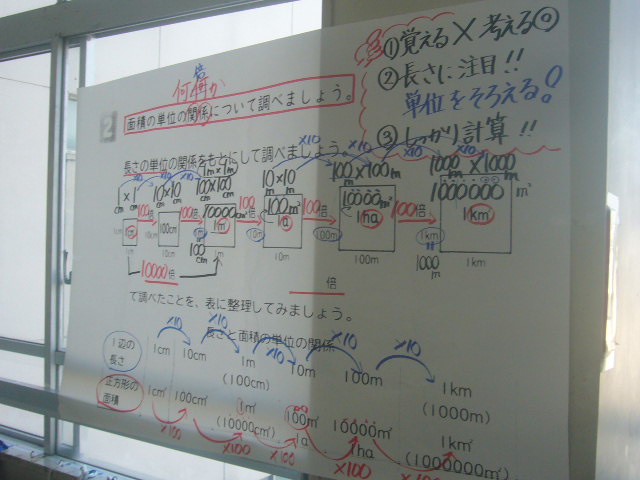 ①覚える×考える◎
②長さに注目!!
単位をそろえる。
③しっかり計算!!
倍
何倍か
2
面積の単位の関係について調べましょう。
長さの単位の関係をもとにして調べましょう。
×10 ×10 ×10 ×10 ×10
1cm×1cm 10cm×10cm 1m×1m 100cm×100cm 10m×10m 100m×100m 1000m×1000m
100cm² 10000cm² 100m² 10000m² 1000000m²
1m² 1a 1ha 1km²
100倍 100倍 100倍 100倍 100倍
1cm 10cm 100cm 10m 100m 1km
1000m
10m 100m 1km
10000倍
倍
て調べたことを、表に整理してみましょう。
長さと面積の単位の関係
×10 ×10 ×10 ×10 ×10
1辺の長さ 1cm 10cm 1m (100cm) 10m 100m 1km (1000m)
正方形の面積 1cm² 100cm² 1m² (10000cm²) 100m² 1a 10000m² 1ha 1km² (1000000m²)
×100 ×100 ×100 ×100 ×100